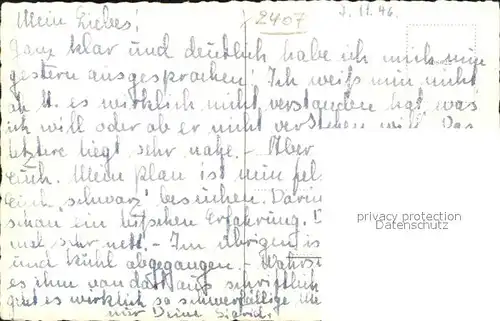 Mein Liebes!
2407
3. 11. 46.
Ganz klar und deutlich habe ich mich nun
gestern ausgesprochen! Ich weiß nun nicht
ob U. es wirklich nicht verstanden hat, was
ich will oder ob er nicht verstehen will. Das
letztere liegt sehr nahe. - Aber
euch. Mein Plan ist nun
Euch "schwarz" besuchen. Darin
schon ein bißchen Erfahrung.
mal sehr nett. - Im übrigen is
und kühl abgegangen. - Wahrs
es ihm von dort aus schriftlich
geht es wirklich so schwerfällige
nur Deine Sigrid.
privacy protection
Datenschutz